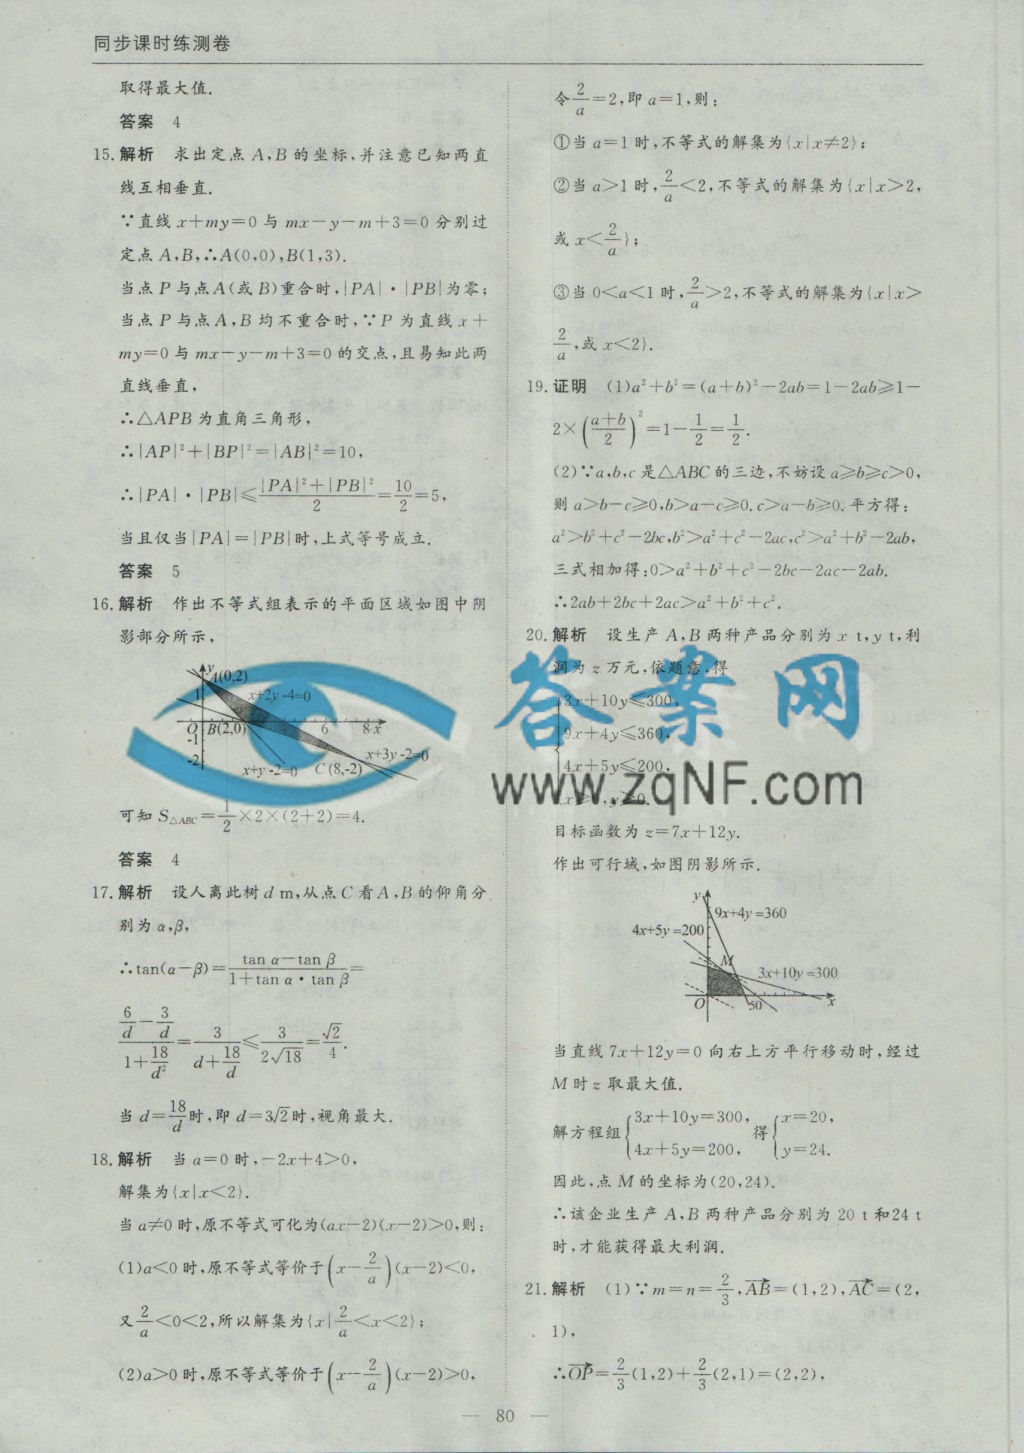 同步课时练测卷
取得最大值.
答案 4
15. 解析 求出定点 A,B 的坐标,并注意已知两直
线互相垂直.
∵直线 x+my=0 与 mx-y-m+3=0 分别过
定点 A,B,∴A(0,0),B(1,3).
当点 P 与点 A(或 B)重合时,|PA|·|PB|为零;
当点 P 与点 A,B 均不重合时,∵P 为直线 x+
my=0 与 mx-y-m+3=0 的交点,且易知此两
直线垂直,
∴△APB 为直角三角形,
∴|AP|²+|BP|²=|AB|²=10,
∴|PA|·|PB|≤(|PA|²+|PB|²)/2=10/2=5,
当且仅当|PA|=|PB|时,上式等号成立.
答案 5
16. 解析 作出不等式组表示的平面区域如图中阴
影部分所示,
y
A(0,2)
1
x+2y-4=0
O B(2,0) 6 8 x
-1
-2
x+3y-2=0
x+y-2=0 C(8,-2)
可知 S△ABC=1/2×2×(2+2)=4.
答案 4
17. 解析 设人离此树 d m,从点 C 看 A,B 的仰角分
别为 α,β,
∴tan(α-β)=(tan α-tan β)/(1+tan α·tan β)=
(6/d-3/d)/(1+18/d²)=3/(d+18/d)≤3/(2√18)=√2/4.
当 d=18/d时,即 d=3√2时,视角最大.
18. 解析 当 a=0 时,-2x+4>0,
解集为{x|x<2}.
当 a≠0 时,原不等式可化为(ax-2)(x-2)>0,则:
(1)a<0 时,原不等式等价于(x-2/a)(x-2)<0,
又2/a<0<2,所以解集为{x|2/a<x<2};
(2)a>0 时,原不等式等价于(x-2/a)(x-2)>0,
令2/a=2,即 a=1,则:
①当 a=1 时,不等式的解集为{x|x≠2};
②当 a>1 时,2/a<2,不等式的解集为{x|x>2,
或 x<2/a};
③当 0<a<1 时,2/a>2,不等式的解集为{x|x>
2/a,或 x<2}.
19. 证明 (1)a²+b²=(a+b)²-2ab=1-2ab≥1-
2×((a+b)/2)²=1-1/2=1/2.
(2)∵a,b,c 是△ABC 的三边,不妨设 a≥b≥c>0,
则 a>b-c≥0,b>a-c≥0,c>a-b≥0.平方得:
a²>b²+c²-2bc,b²>a²+c²-2ac,c²>a²+b²-2ab,
三式相加得:0>a²+b²+c²-2bc-2ac-2ab.
∴2ab+2bc+2ac>a²+b²+c².
20. 解析 设生产 A,B 两种产品分别为 x t,y t,利
润为 z 万元,依题意,得
3x+10y≤300,
9x+4y≤360,
4x+5y≤200,
y≥0.
答案网
www.zqNF.com
目标函数为 z=7x+12y.
作出可行域,如图阴影所示.
y
9x+4y=360
4x+5y=200
M
3x+10y=300
O 50 x
当直线 7x+12y=0 向右上方平行移动时,经过
M 时 z 取最大值.
解方程组{3x+10y=300, 4x+5y=200, 得{x=20, y=24.
因此,点 M 的坐标为(20,24).
∴该企业生产 A,B 两种产品分别为 20 t 和24 t
时,才能获得最大利润.
21. 解析 (1)∵m=n=2/3,AB→=(1,2),AC→=(2,
1),
∴OP→=2/3(1,2)+2/3(2,1)=(2,2),
— 80 —